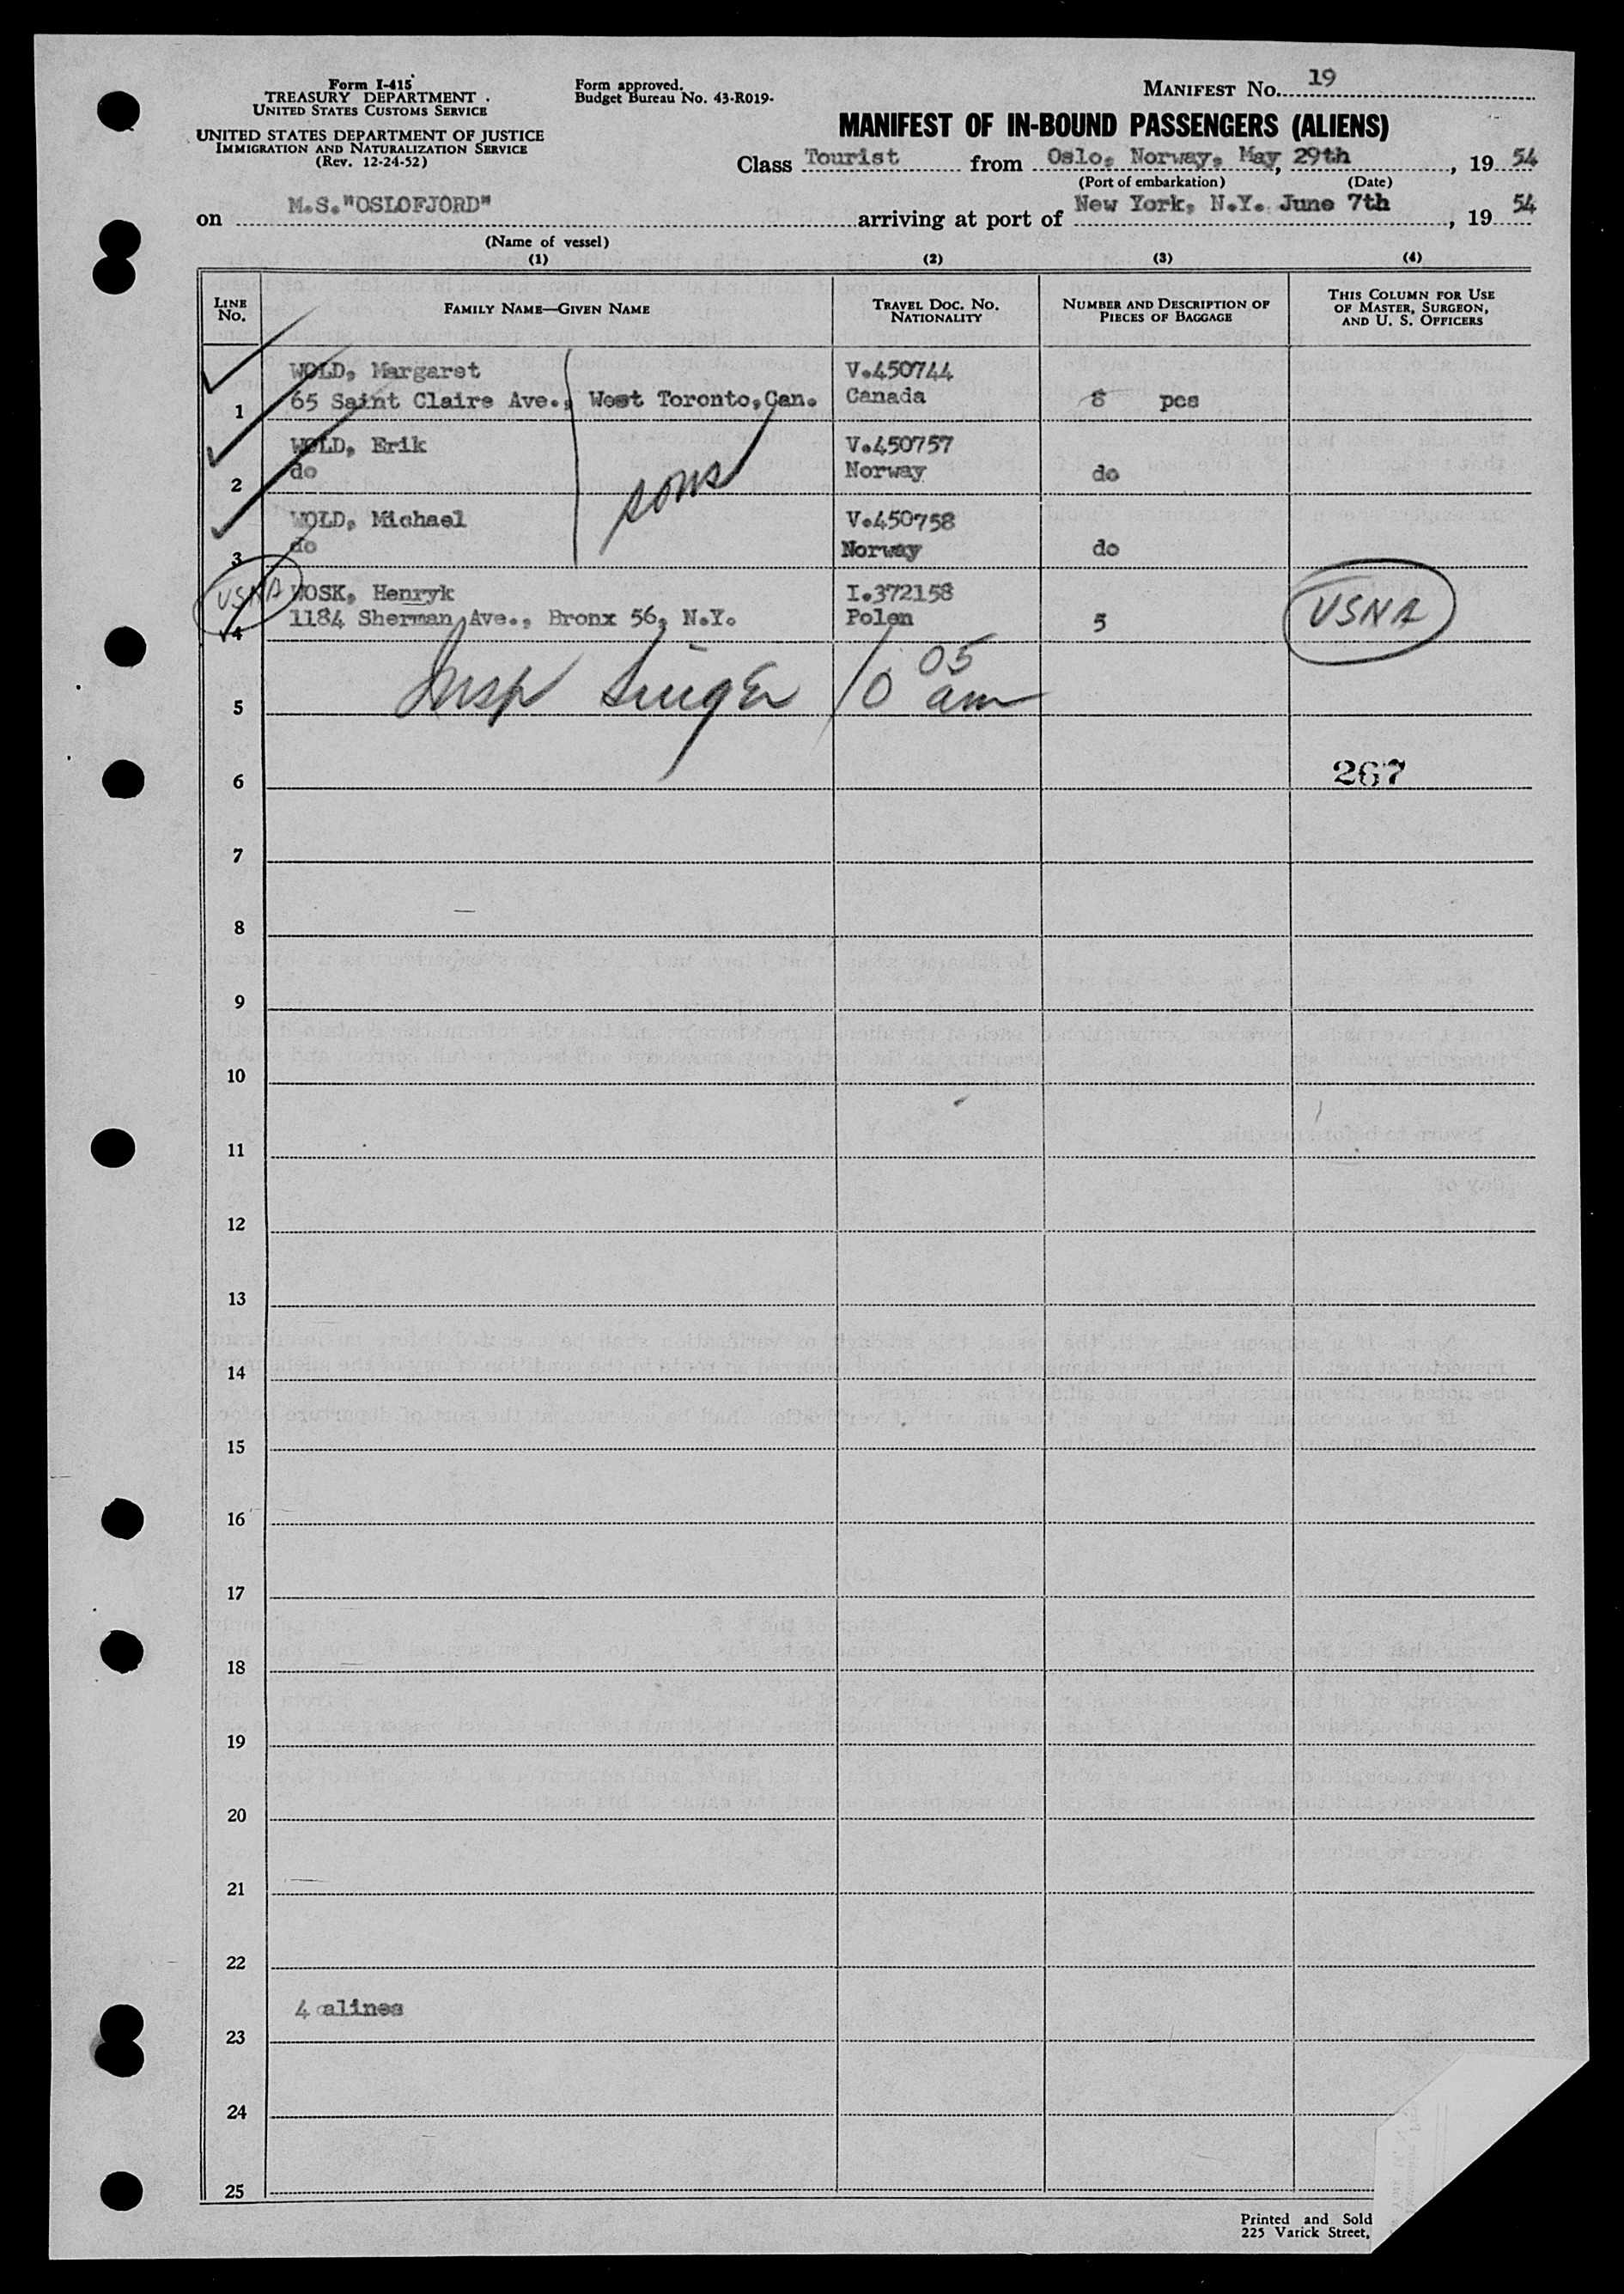 Form I-415
TREASURY DEPARTMENT
UNITED STATES CUSTOMS SERVICE
UNITED STATES DEPARTMENT OF JUSTICE
IMMIGRATION AND NATURALIZATION SERVICE
(Rev. 12-24-52)
Form approved.
Budget Bureau No. 43-R019.
MANIFEST No. 19
MANIFEST OF IN-BOUND PASSENGERS (ALIENS)
Class Tourist from Oslo, Norway, May 29th, 1954
(Port of embarkation) (Date)
on M.S."OSLOFJORD" arriving at port of New York, N.Y. June 7th, 1954
(Name of vessel)
(1) (2) (3) (4)
LINE No. FAMILY NAME—GIVEN NAME TRAVEL DOC. No. NATIONALITY NUMBER AND DESCRIPTION OF PIECES OF BAGGAGE THIS COLUMN FOR USE OF MASTER, SURGEON, AND U. S. OFFICERS
WOLD, Margaret V.450744
1 65 Saint Claire Ave., West Toronto,Can. Canada 8 pcs
WOLD, Erik V.450757
2 do sons Norway do
WOLD, Michael V.450758
3 do Norway do
USNA WOSK, Henryk I.372158 USNA
4 1184 Sherman Ave., Bronx 56, N.Y. Polen 5
5 Insp Singer 10 05 am
6 267
7
8
9
10
11
12
13
14
15
16
17
18
19
20
21
22
4 alines
23
24
25
Printed and Sold
225 Varick Street,